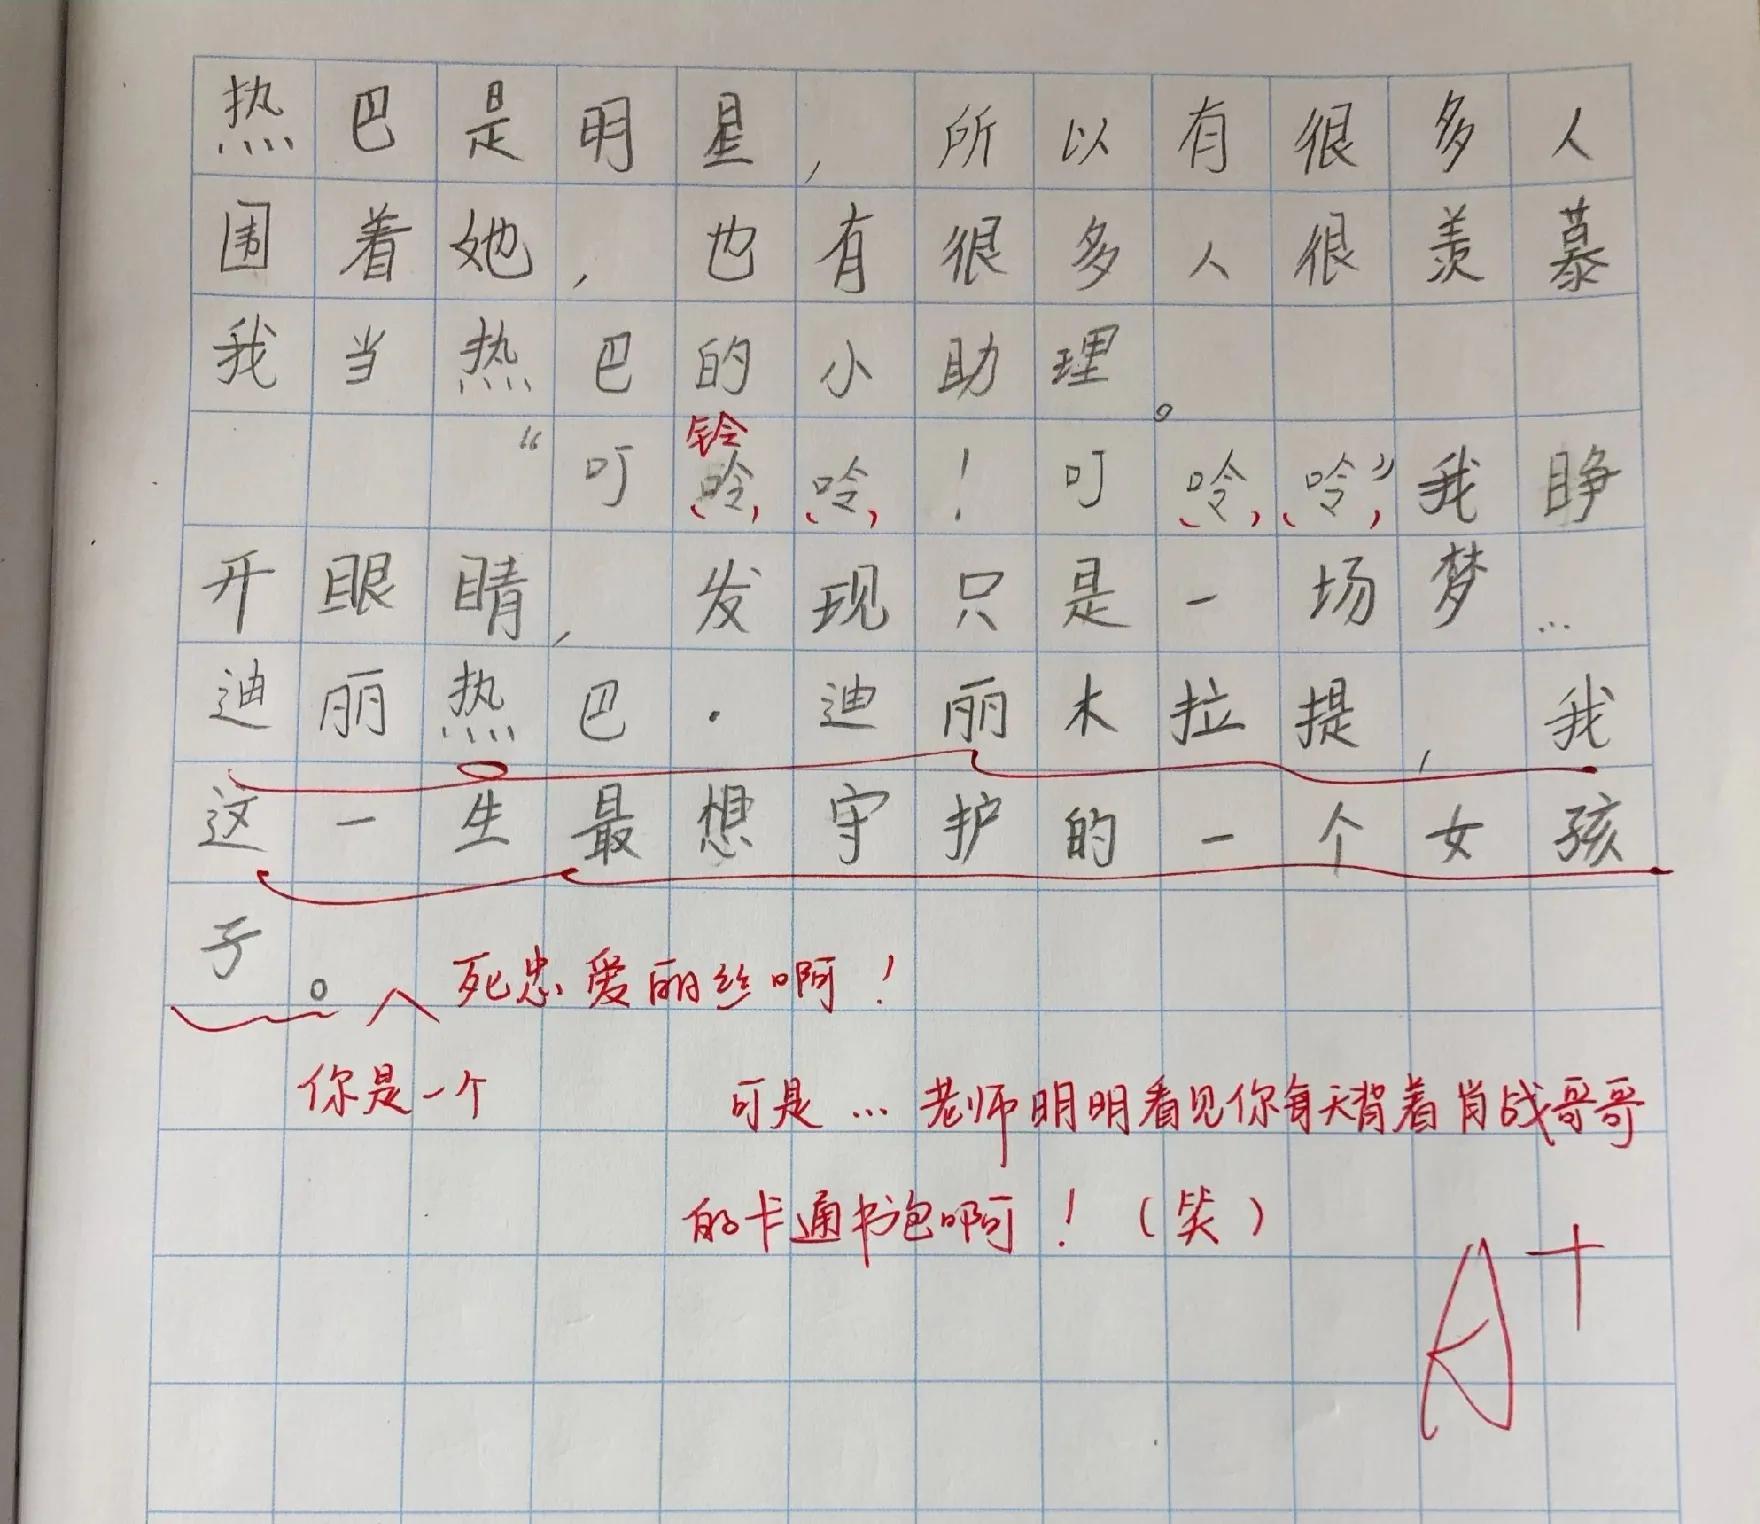 热巴是明星，所以有很多人
围着她，也有很多人很羡慕
我当热巴的小助理。
铃
“叮呤呤！叮呤呤”我睁
开眼睛，发现只是一场梦…
迪丽热巴·迪丽木拉提，我
这一生最想守护的一个女孩
子。
死忠爱丽丝啊！
你是一个
可是…老师明明看见你每天背着肖战哥哥
的卡通书包啊！（笑）
A+